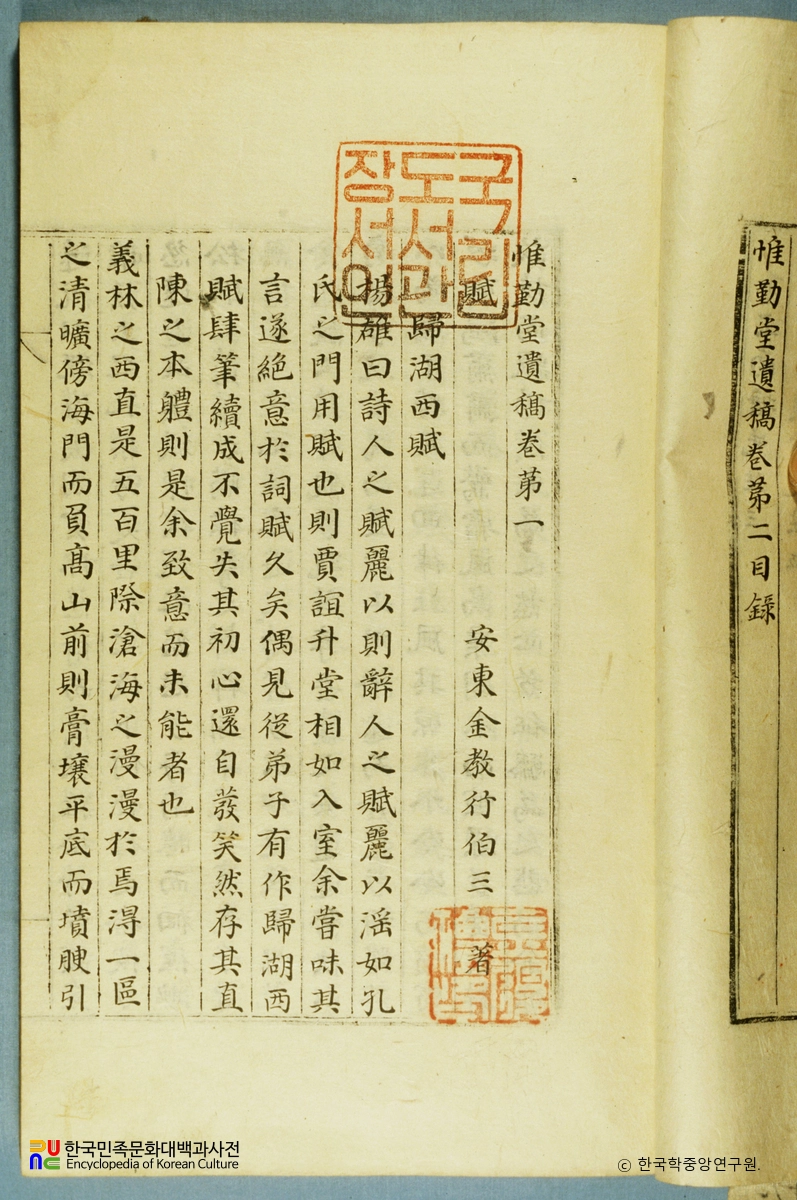 惟勤堂遺稿卷第二目錄
惟勤堂遺稿卷第一
賦 安東金教行伯三 著
歸湖西賦
揚雄曰詩人之賦麗以則辭人之賦麗以滛如孔
氏之門用賦也則賈誼升堂相如入室余嘗味其
言遂絕意於詞賦久矣偶見從弟子有作歸湖西
賦肆筆續成不覺失其初心還自發笑然存其直
陳之本體則是余致意而未能者也
義林之西直是五百里際滄海之漫漫於焉淂一區
之清曠傍海門而負髙山前則膏壤平底而墳腴引
국립
도서관
장서인
한국민족문화대백과사전
Encyclopedia of Korean Culture
ⓒ 한국학중앙연구원.